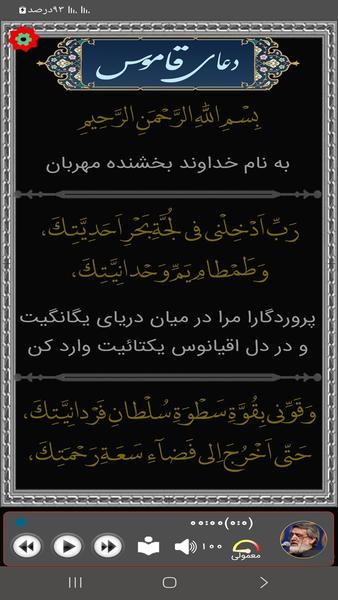 ۹۳درصد
دعای قاموس
بِسْمِ اللّٰهِ الرَّحْمٰنِ الرَّحِيمِ
به نام خداوند بخشنده مهربان
رَبِّ اَدْخِلْنی فی لُجَّةِ بَحْرِ اَحَدِيَّتِكَ،
وَ طَمْطامِ يَمِّ وَحْدانِيَّتِكَ،
پروردگارا مرا در میان دریای یگانگیت
و در دل اقیانوس یکتائیت وارد کن
وَ قَوِّنی بِقُوَّةِ سَطْوَةِ سُلْطانِ فَرْدانِيَّتِكَ،
حَتّی اَخْرُجَ اِلی فَضآءِ سَعَةِ رَحْمَتِكَ،
۰۰:۰۰(۰:۰)
۱۰۰
معمولی